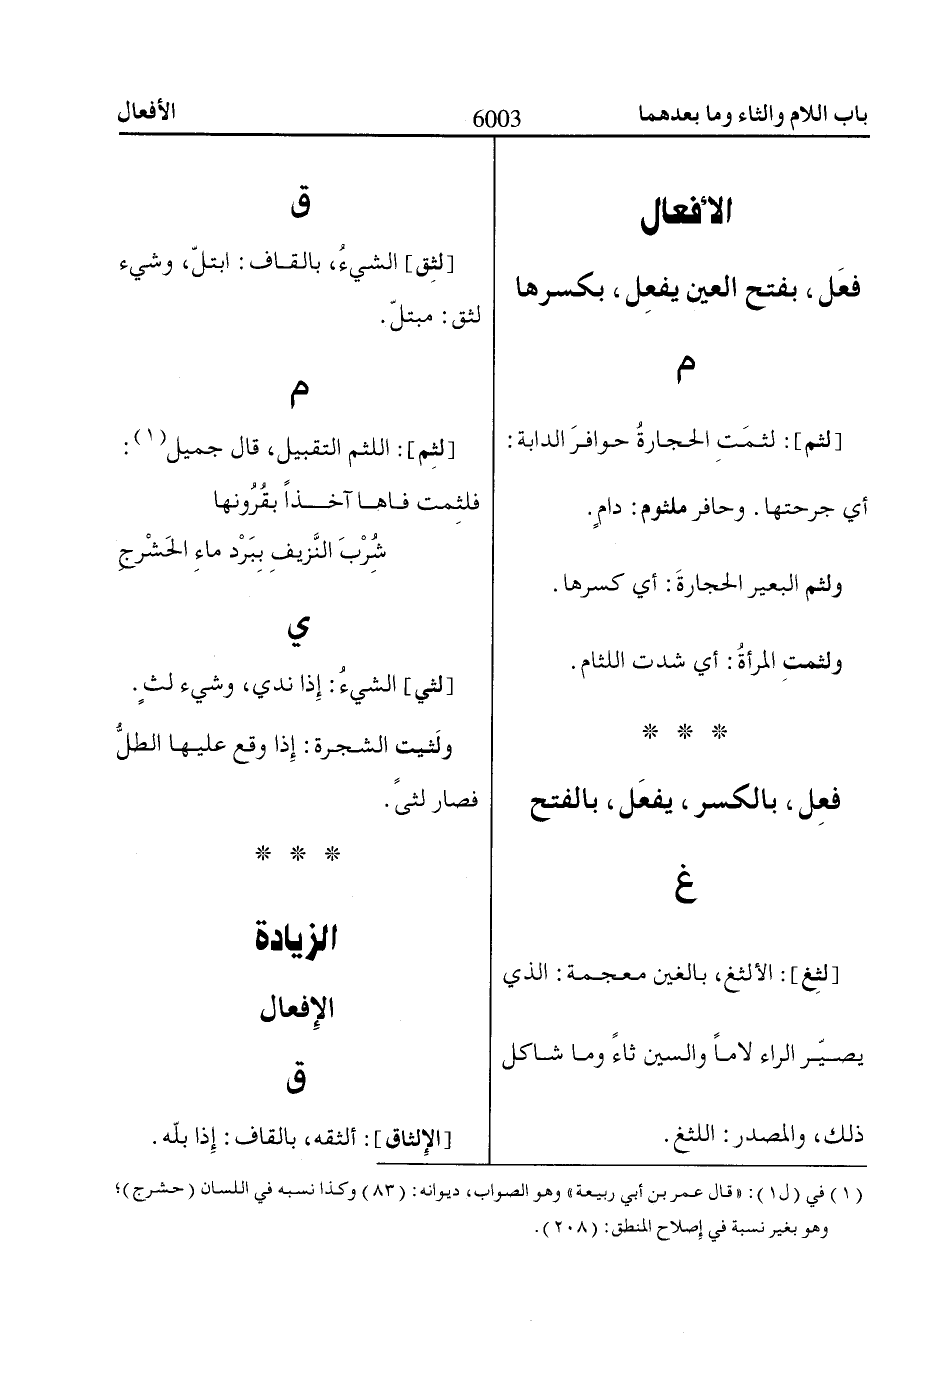 باب اللام والثاء وما بعدهما
6003
الأفعال
الأفعال
فعَل، بفتح العين يفعِل، بكسرها
م
[لثم]: لثمَتِ الحجارةُ حوافرَ الدابة:
أي جرحتها. وحافر ملثوم: دامٍ.
ولثم البعير الحجارةَ: أي كسرها.
ولثمتِ المرأةُ: أي شدت اللثام.
* * *
فعِل، بالكسر، يفعَل، بالفتح
غ
[لثِغ]: الألثغ، بالغين معجمة: الذي
يصيّر الراء لاماً والسين ثاءً وما شاكل
ذلك، والمصدر: اللثغ.
ق
[لثِق] الشيءُ، بالقاف: ابتلّ، وشيء
لثق: مبتلّ.
م
[لثِم]: اللثم التقبيل، قال جميل(١):
فلثِمت فاها آخذاً بقُرُونها
شُرْبَ النَّزيفِ بِبَرْد ماءِ الحَشْرجِ
ي
[لثي] الشيءُ: إذا ندي، وشيء لثٍ.
ولَثيت الشجرة: إذا وقع عليها الطلُّ
فصار لثىً.
* * *
الزيادة
الإفعال
ق
[الإلثاق]: ألثقه، بالقاف: إذا بلّه.
(١) في (ل١): «قال عمر بن أبي ربيعة» وهو الصواب، ديوانه: (٨٣) وكذا نسبه في اللسان (حشرج)؛
وهو بغير نسبة في إصلاح المنطق: (٢٠٨).